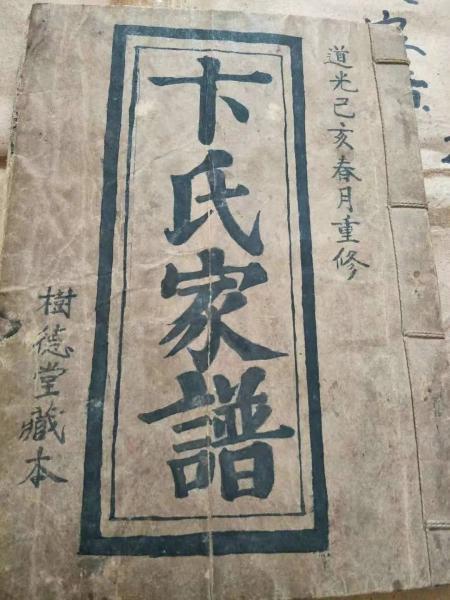 道光己亥春月重修
卞氏家譜
樹德堂藏本